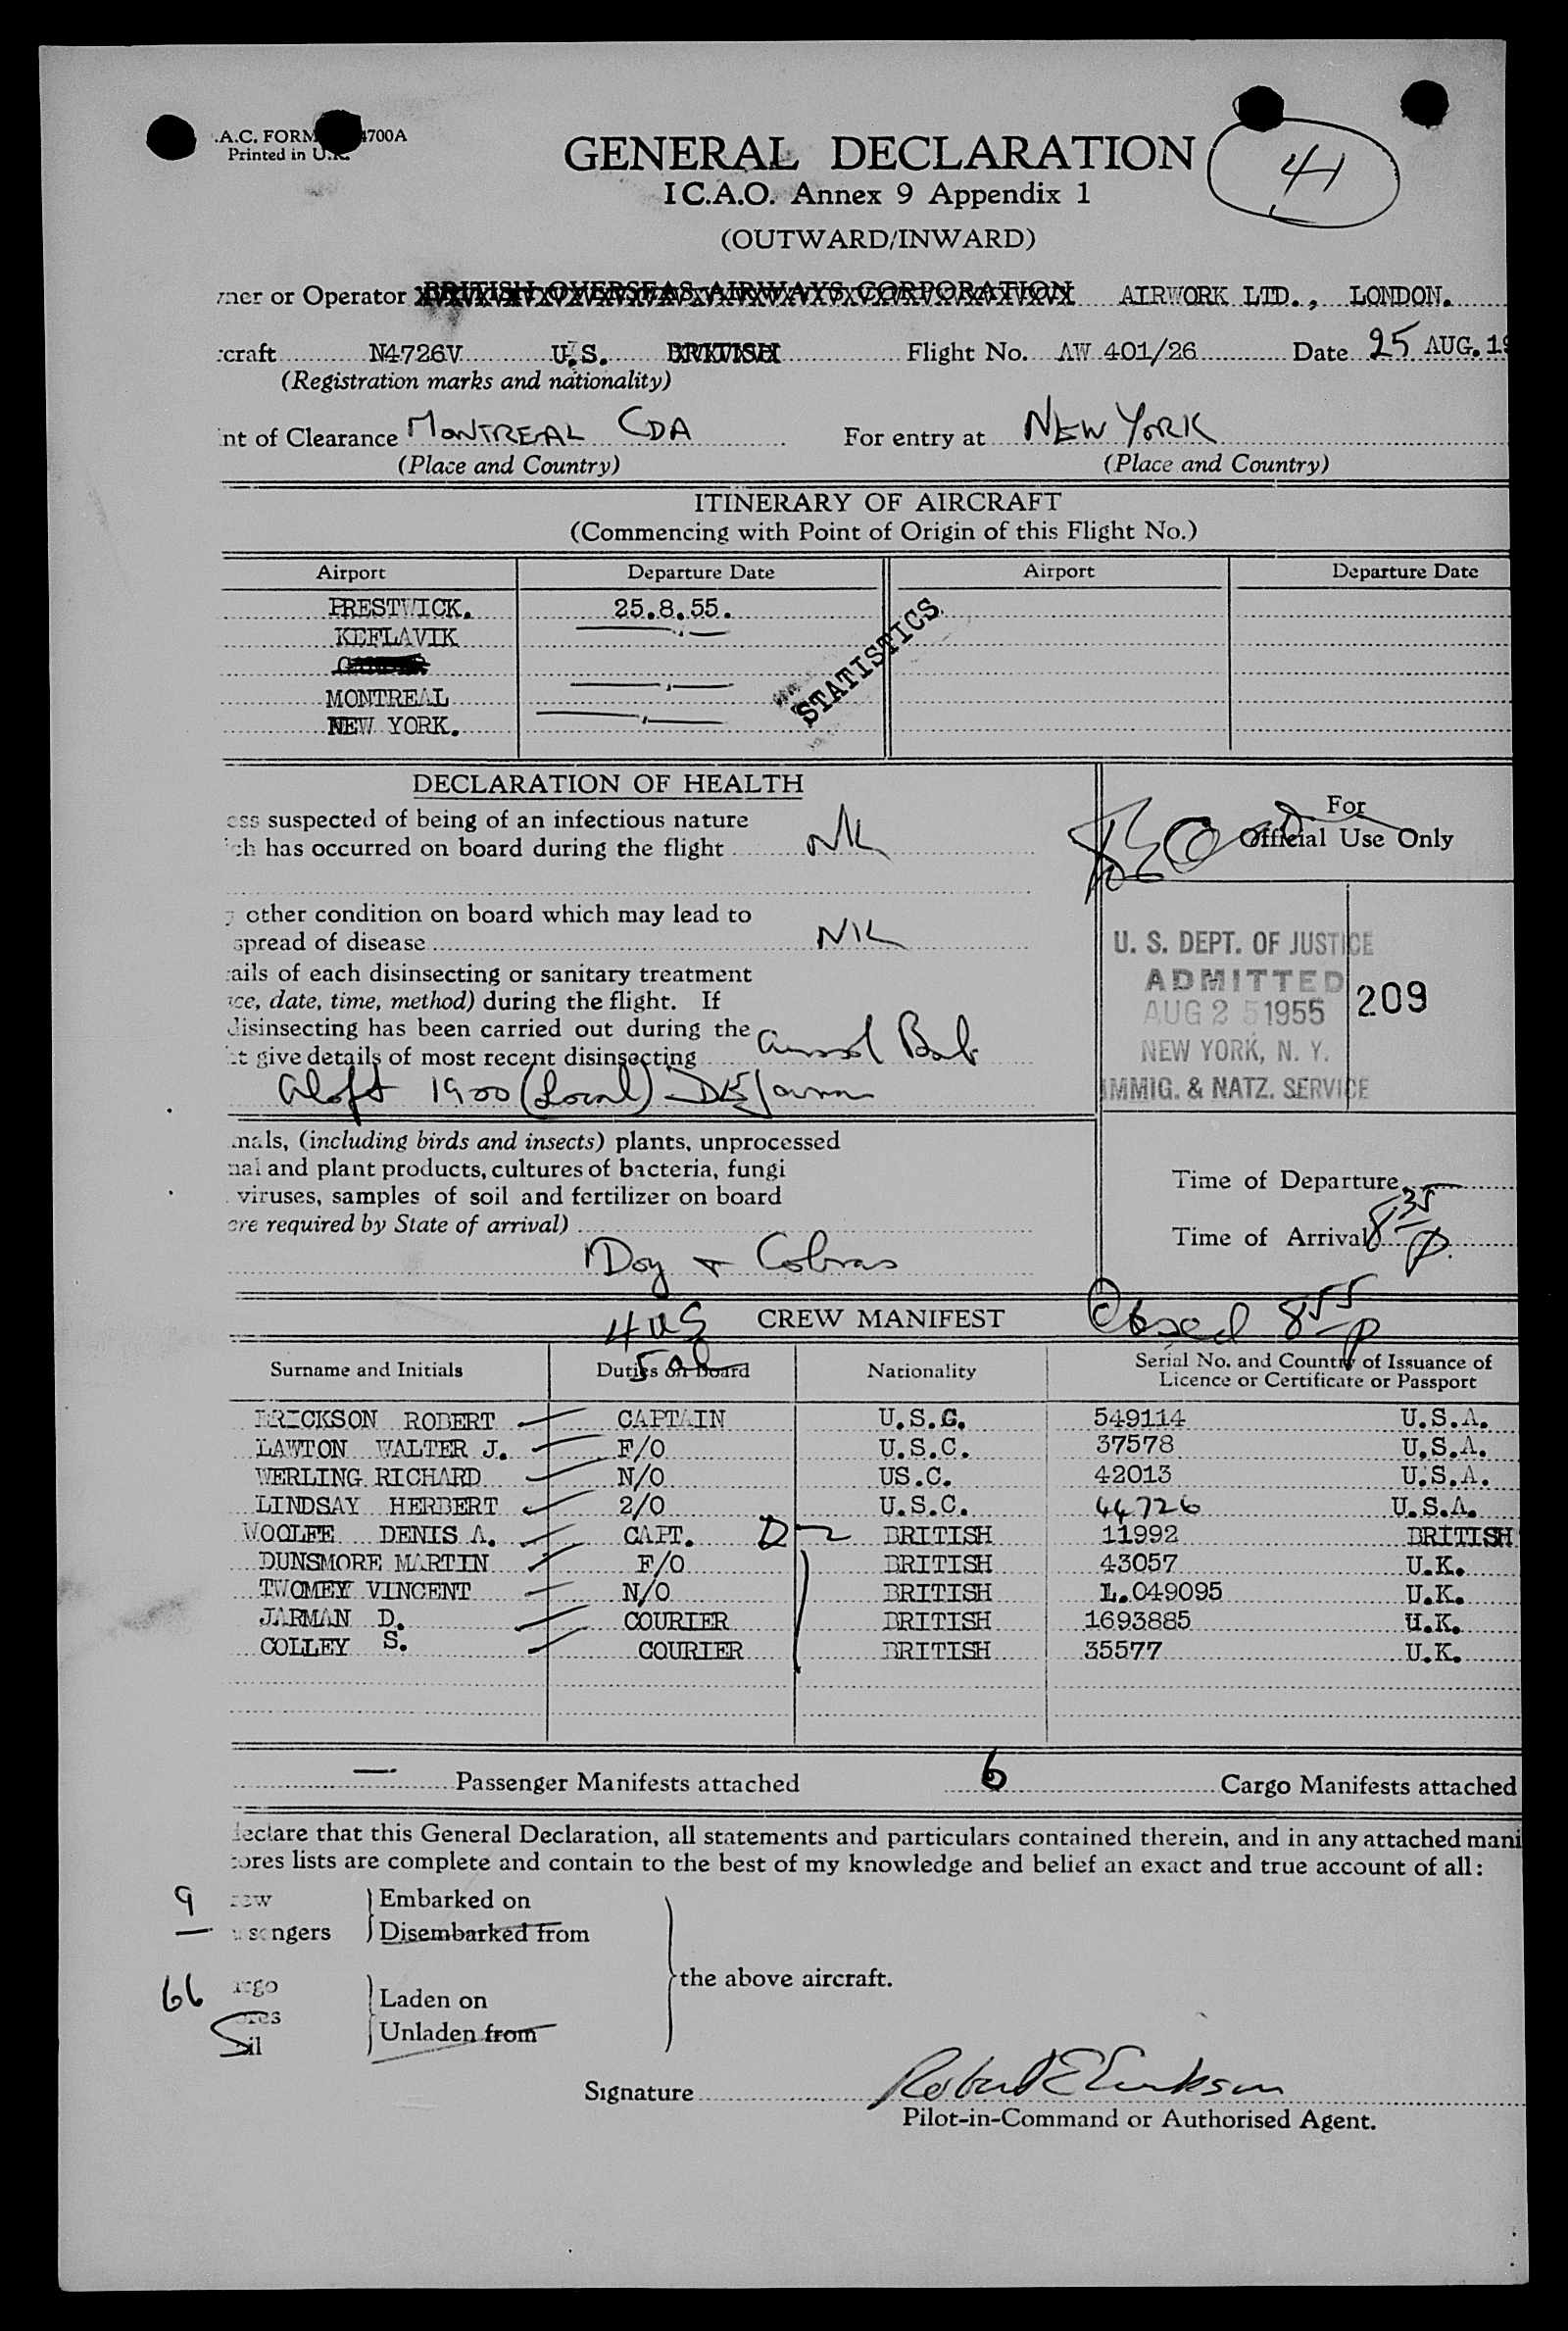 .A.C. FORM 4700A
Printed in U.K.
GENERAL DECLARATION
I C.A.O. Annex 9 Appendix 1
41
(OUTWARD/INWARD)
ner or Operator BRITISH OVERSEAS AIRWAYS CORPORATION AIRWORK LTD., LONDON.
craft N4726V U.S. BRITISH Flight No. AW 401/26 Date 25 AUG. 19
(Registration marks and nationality)
nt of Clearance MONTREAL CDA For entry at NEW YORK
(Place and Country) (Place and Country)
ITINERARY OF AIRCRAFT
(Commencing with Point of Origin of this Flight No.)
Airport Departure Date Airport Departure Date
PRESTWICK. 25.8.55.
KEFLAVIK
MONTREAL
NEW YORK.
STATISTICS
DECLARATION OF HEALTH
ess suspected of being of an infectious nature
ch has occurred on board during the flight NIL
other condition on board which may lead to
spread of disease NIL
ails of each disinsecting or sanitary treatment
ce, date, time, method) during the flight. If
disinsecting has been carried out during the
t give details of most recent disinsecting Aerosol Bomb
Aloft 1900 (Local) DEJarman
For
Official Use Only
U. S. DEPT. OF JUSTICE
ADMITTED
AUG 25 1955
NEW YORK, N. Y.
IMMIG. & NATZ. SERVICE
209
mals, (including birds and insects) plants, unprocessed
nal and plant products, cultures of bacteria, fungi
viruses, samples of soil and fertilizer on board
ere required by State of arrival)
Dog + Cobras
Time of Departure
Time of Arrival 8 35 p
4 US
5 al
CREW MANIFEST
Closed 8 55 p
Surname and Initials Duties on Board Nationality Serial No. and Country of Issuance of
Licence or Certificate or Passport
ERICKSON ROBERT CAPTAIN U.S.C. 549114 U.S.A.
LAWTON WALTER J. F/O U.S.C. 37578 U.S.A.
WERLING RICHARD N/O US.C. 42013 U.S.A.
LINDSAY HERBERT 2/O U.S.C. 44726 U.S.A.
WOOLFE DENIS A. CAPT. D-2 BRITISH 11992 BRITISH
DUNSMORE MARTIN F/O BRITISH 43057 U.K.
TWOMEY VINCENT N/O BRITISH L.049095 U.K.
JARMAN D. COURIER BRITISH 1693885 U.K.
COLLEY S. COURIER BRITISH 35577 U.K.
— Passenger Manifests attached 6 Cargo Manifests attached
declare that this General Declaration, all statements and particulars contained therein, and in any attached mani
ores lists are complete and contain to the best of my knowledge and belief an exact and true account of all:
9 rew Embarked on
— ssengers Disembarked from
the above aircraft.
66 argo Laden on
ores
Unladen from
Signature Robert E Erickson
Pilot-in-Command or Authorised Agent.